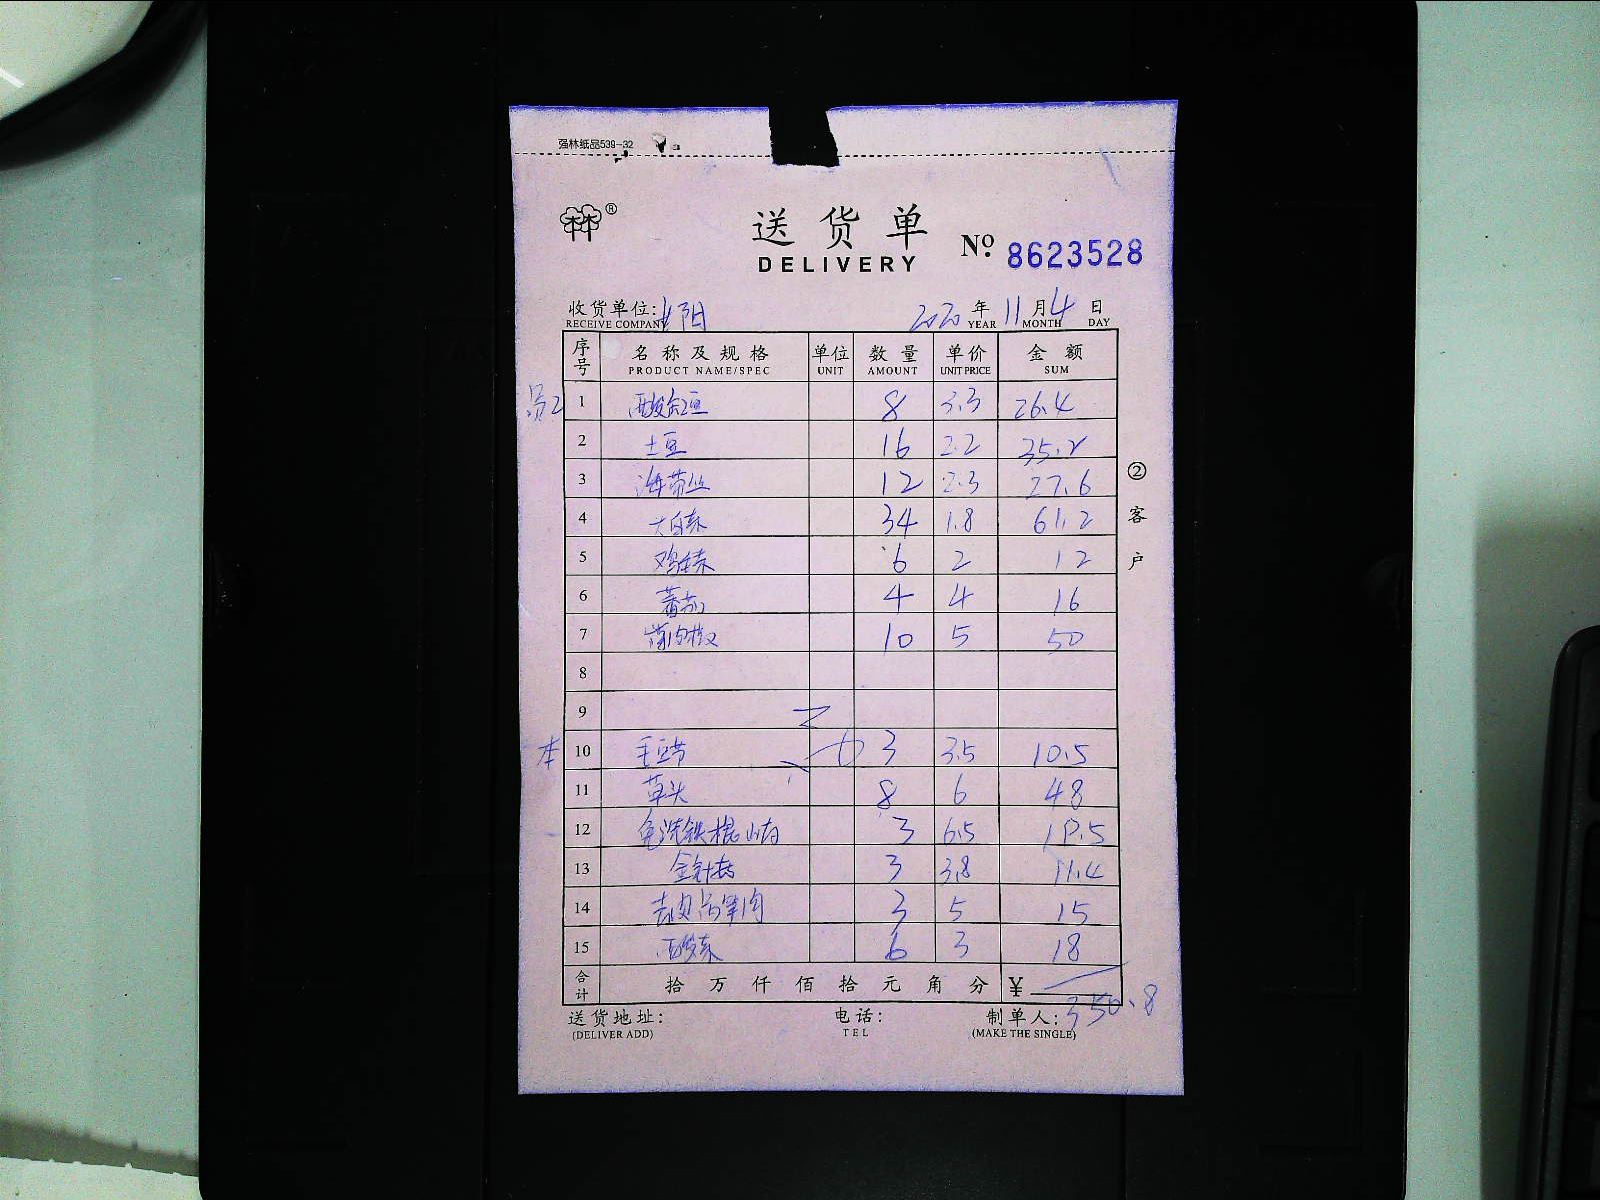 强林纸品539-32
®
送货单
DELIVERY
Nº 8623528
收货单位: 阳
RECEIVE COMPANY
2020 年 11 月 4 日
YEAR MONTH DAY
序号 名称及规格 单位 数量 单价 金额
PRODUCT NAME/SPEC UNIT AMOUNT UNIT PRICE SUM
1 8 3.3 26.4
2 土豆 16 2.2 35.2
3 海带丝 12 2.3 27.6
4 大白菜 34 1.8 61.2
5 鸡毛菜 6 2 12
6 蕃茄 4 4 16
7 10 5 50
8
9
本 10 毛豆节 3 3.5 10.5
11 草头 8 6 48
12 免洗铁棍山药 3 6.5 19.5
13 金针菇 3 3.8 11.4
14 3 5 15
15 酸菜 6 3 18
合计 拾 万 仟 佰 拾 元 角 分 ¥ 350.8
② 客户
送货地址: 电话: 制单人:
(DELIVER ADD) TEL (MAKE THE SINGLE)